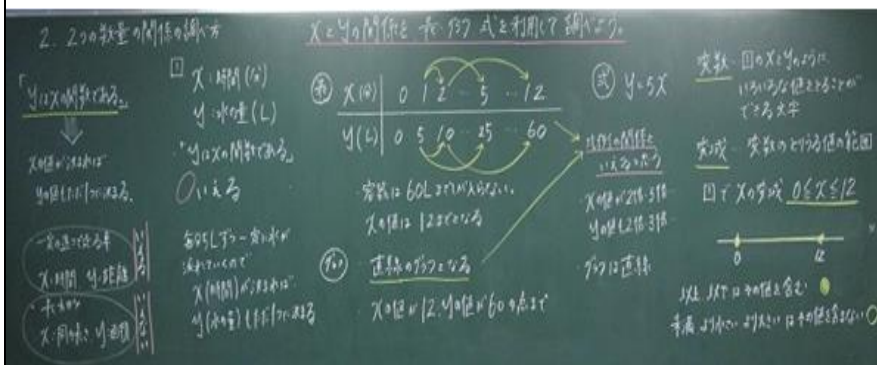 2. 2つの数量の関係の調べ方
XとYの関係を 表 グラフ 式を利用して調べよう。
「YはXの関数である」
Xの値が決まれば
Yの値もただ1つに決まる。
一定の速さで走る車
X:時間 Y:距離
いえる
いえない
1
X:時間(分)
Y:水の量(L)
「YはXの関数である」
いえる
毎分5Lずつ一定に水が
流れていくので
X(時間)が決まれば
Y(水の量)もただ1つに決まる
表
X(分) 0 1 2 … 5 … 12
Y(L) 0 5 10 … 25 … 60
容器は60Lまでしか入らない。
Xの値は12までとなる
グラフ
直線のグラフとなる
Xの値が12、Yの値が60の点まで
式 Y=5X
比例の関係と
いえるだろう
Xの値が2倍・3倍…
Yの値も2倍・3倍…
グラフは直線
変数… 1のXとYのように
いろいろな値をとることが
できる文字
変域… 変数のとりうる値の範囲
1でXの変域 0≦X≦12
0 12
以上 以下はその値を含む
未満 より小さい より大きいはその値を含まない